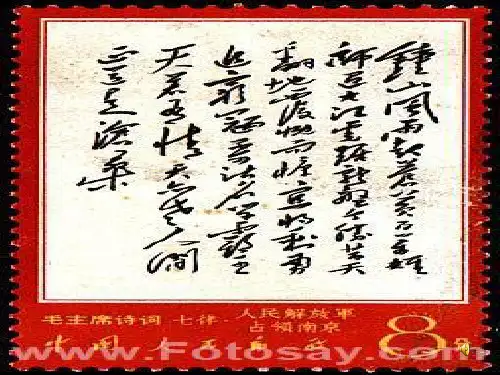 鍾山風雨起蒼黃百万雄
師过大江虎踞龍盤今勝昔天
翻地覆慨而慷宜將剩勇
追窮寇不可沽名學霸王
天若有情天亦老人间
正道是滄桑
毛主席诗词 七律·人民解放軍
占領南京
中国人民邮政 8分
www.Fotosay.com